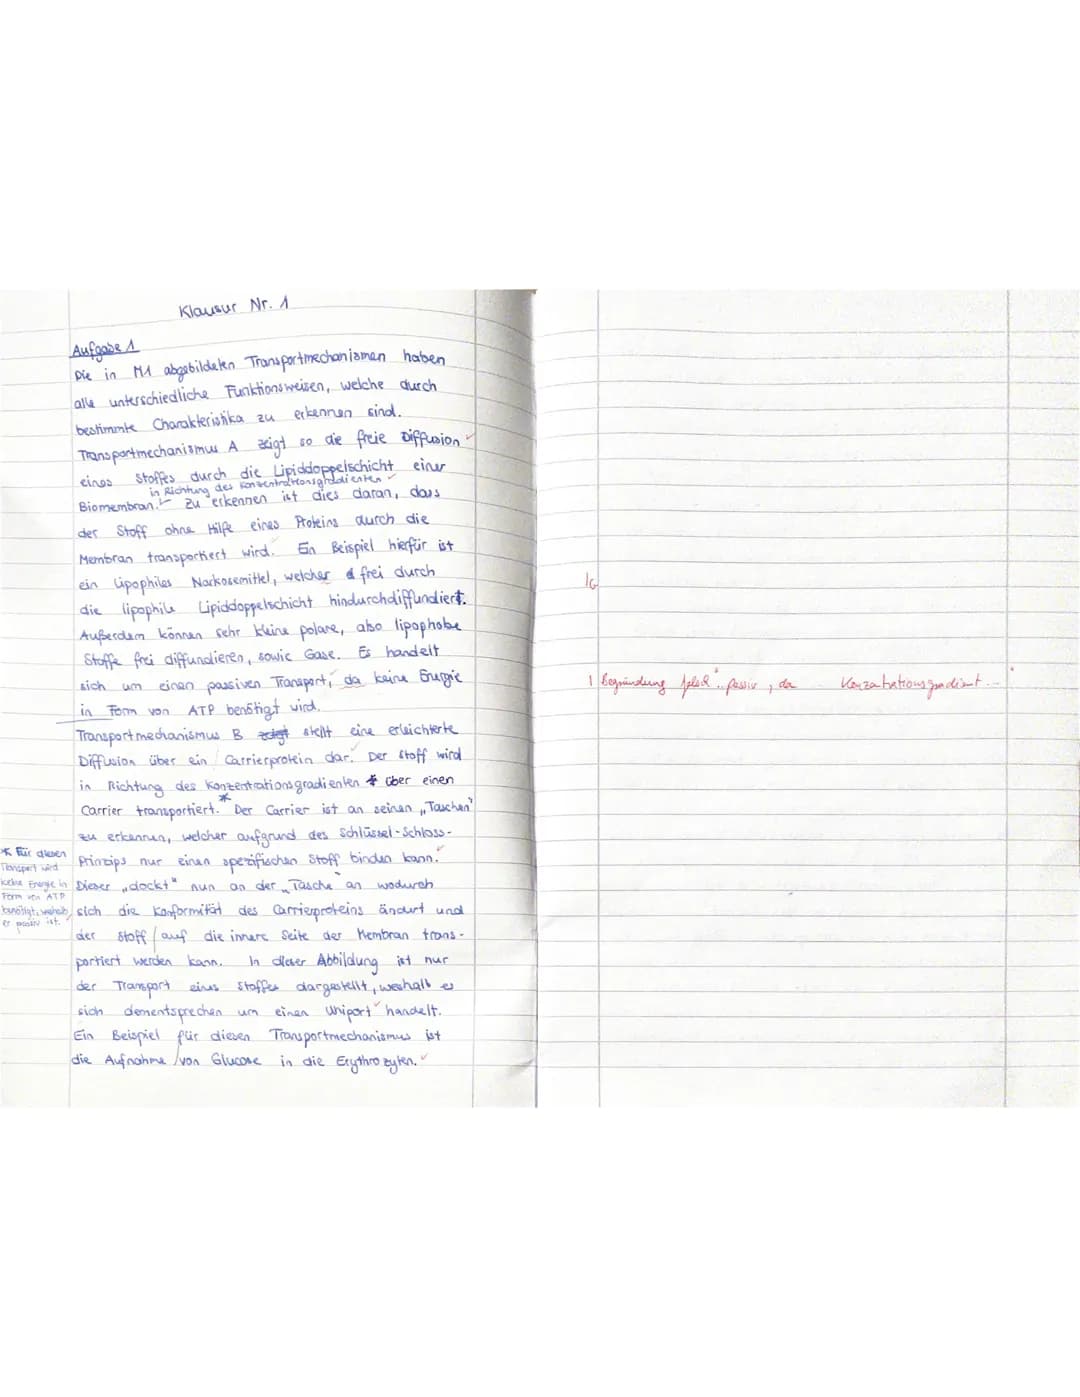 Klausur Nr. 1
Aufgabe 1
Die in M1 abgebildeten Transportmechanismen haben
alle unterschiedliche Funktionsweisen, welche durch
bestimmte Charakteristika zu erkennen sind.
Transportmechanismus A zeigt so die freie Diffusion
eines Stoffes durch die Lipiddoppelschicht einer
in Richtung des Konzentrationsgradienten
Biomembran. Zu erkennen ist dies daran, dass
der Stoff ohne Hilfe eines Proteins durch die
Membran transportiert wird. Ein Beispiel hierfür ist
ein lipophiles Narkosemittel, welcher frei durch
die lipophile Lipiddoppelschicht hindurchdiffundiert.
Außerdem können sehr kleine polare, also lipophobe
Stoffe frei diffundieren, sowie Gase. Es handelt
sich um einen passiven Transport, da keine Energie
in Form von ATP benötigt wird.
Transportmechanismus B stellt eine erleichterte
Diffusion über ein Carrierprotein dar. Der Stoff wird
in Richtung des Konzentrationsgradienten über einen
Carrier transportiert.* Der Carrier ist an seinen „Taschen"
zu erkennen, welcher aufgrund des Schlüssel-Schloss-
Prinzips nur einen spezifischen Stoff binden kann.
Dieser „dockt" nun an der „Tasche" an wodurch
sich die Konformität des Carrierproteins ändert und
der Stoff auf die innere Seite der Membran trans-
portiert werden kann. In dieser Abbildung ist nur
der Transport eines Stoffes dargestellt, weshalb es
sich dementsprechen um einen Uniport handelt.
Ein Beispiel für diesen Transportmechanismus ist
die Aufnahme von Glucose in die Erythrozyten.
* Für diesen
Transport wird
keine Energie in
Form von ATP
benötigt, weshalb
er passiv ist.
1G
1 Begründung fehlt: passiv, da Konzentrationsgradient...